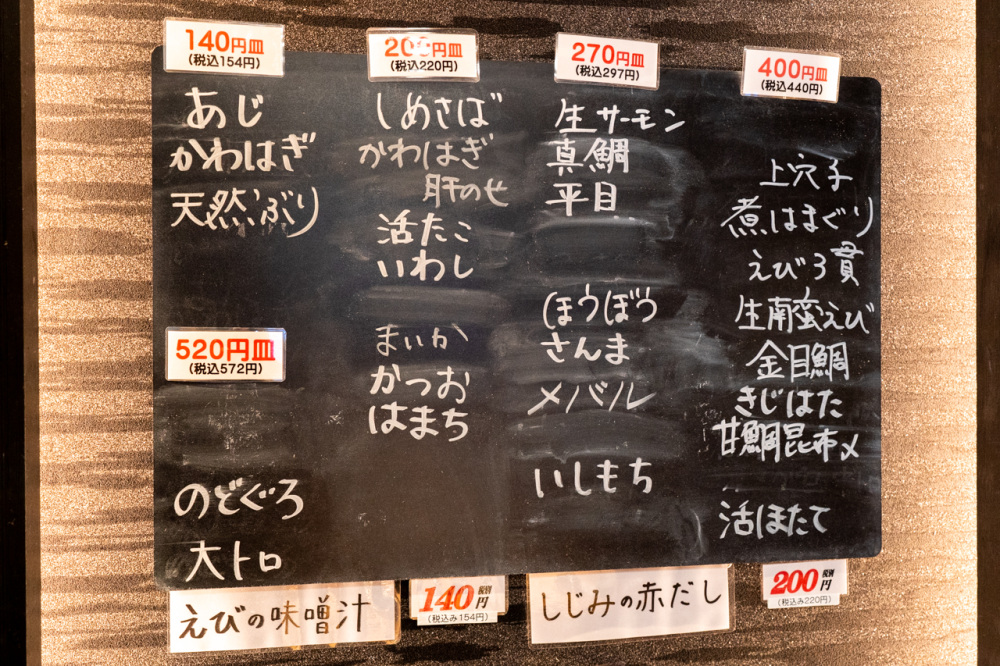 140円皿
(税込154円)
あじ
かわはぎ
天然ぶり
520円皿
(税込572円)
のどぐろ
大トロ
200円皿
(税込220円)
しめさば
かわはぎ
肝のせ
活たこ
いわし
まいか
かつお
はまち
270円皿
(税込297円)
生サーモン
真鯛
平目
ほうぼう
さんま
メバル
いしもち
400円皿
(税込440円)
上穴子
煮はまぐり
えび3貫
生南蛮えび
金目鯛
きじはた
甘鯛昆布〆
活ほたて
えびの味噌汁
140円 税別
(税込み154円)
しじみの赤だし
200円 税別
(税込み220円)